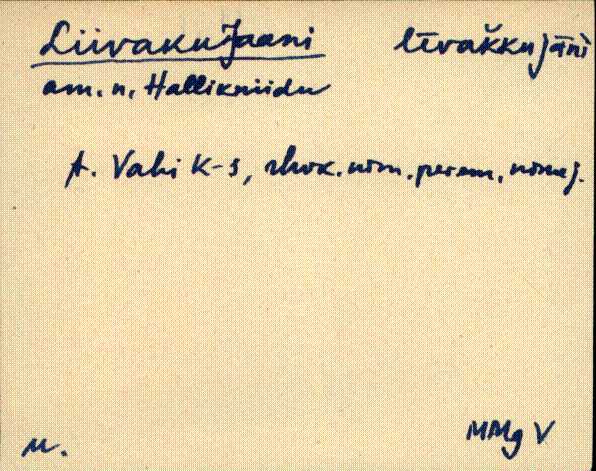 Liivaku Jaani līvàkku jāni
am. n. Hallikniidu
A. Vahi K-s, rhvk. nim. perem. nime j.
M. MMg V